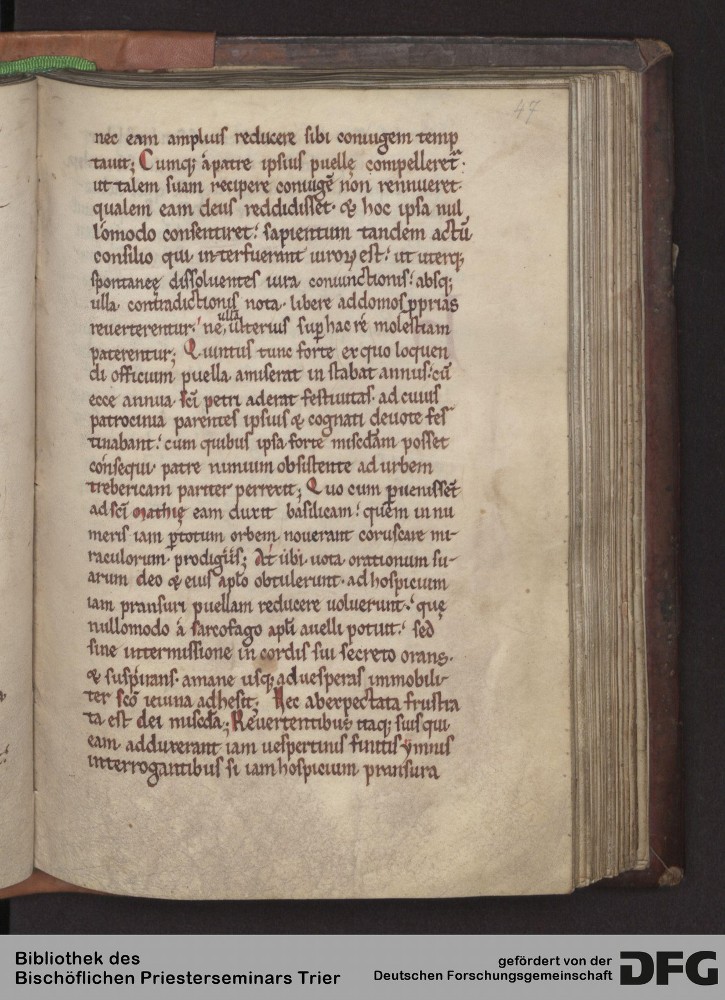 47
nec eam amplius reducere sibi coniugem temp
tauit; Cumq; apatre ipsius puellę compelleret᷑·
ut talem suam recipere coniugē non rennueret·
qualem eam deus reddidisset· & hoc ipsa nul
lomodo consentiret·' sapientum tandem actū
consilio qui interfuerant uiroꝝ est·' ut uterq;
spontaneę dissoluentes iura coniunctionis·' absq;
ulla contradictionis nota· libere addomos ꝓprias
reuerterentur·' ne ulla ulterius suꝑ hac re molestiam
paterentur; Quintus tunc forte ex quo loquen
di officium puella amiserat instabat annus·' cū
ecce annua sc̄i petri aderat festiuitas· ad cuius
patrocinia parentes ipsius & cognati deuote fes
tinabant·' cum quibus ipsa forte misc̄dam posset
consequi· patre nimium obsistente ad urbem
trebericam pariter perrexit; Quo cum ꝑuenisset
ad sc̄i Mathię eam duxit basilicam·' quem innu
meris iam ꝑ totum orbem nouerant coruscare mi-
raculorum prodigiis; At ubi uota orationum su-
arum deo & eius ap̄lo obtulerunt· ad hospicium
iam pransuri puellam reducere uoluerunt·' quę
nullomodo a sarcofago ap̄li auelli potuit·' sed
sine intermissione in cordis sui secreto orans·
& suspirans· amane usq; ad uesperas immobili-
ter sc̄o ieiuna adhesit; Nec aberpectata frustra
ta est dei misc̄da; Reuertentibus itaq; suis qui
eam adduxerant iam uespertinis finitis ymnis
interrogantibus si iam hospicium pransura
Bibliothek des
Bischöflichen Priesterseminars Trier
gefördert von der
Deutschen Forschungsgemeinschaft
DFG